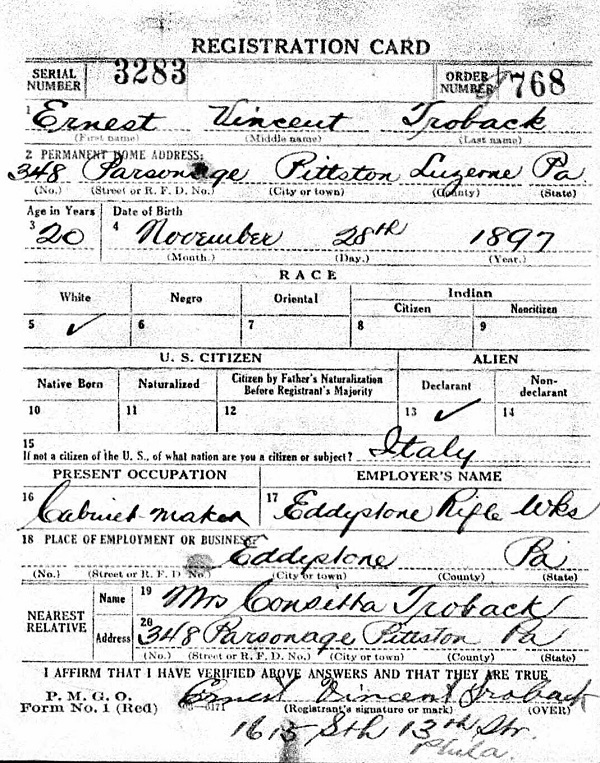 REGISTRATION CARD
SERIAL NUMBER 3283 ORDER NUMBER 768
1 Ernest Vincent Troback
(First name) (Middle name) (Last name)
2 PERMANENT HOME ADDRESS:
348 Parsonage Pittston Luzerne Pa
(No.) (Street or R. F. D. No.) (City or town) (County) (State)
Age in Years Date of Birth
3 20 4 November 28th 1897
(Month.) (Day.) (Year.)
RACE
White Negro Oriental Indian
Citizen Noncitizen
5 ✓ 6 7 8 9
U. S. CITIZEN ALIEN
Native Born Naturalized Citizen by Father's Naturalization Before Registrant's Majority Declarant Non-declarant
10 11 12 13 ✓ 14
15
If not a citizen of the U. S., of what nation are you a citizen or subject? Italy
PRESENT OCCUPATION EMPLOYER'S NAME
16 Cabinet maker 17 Eddystone Rifle Wks
18 PLACE OF EMPLOYMENT OR BUSINESS:
Eddystone Pa
(No.) (Street or R. F. D. No.) (City or town) (County) (State)
NEAREST RELATIVE Name 19 Mrs Consetta Troback
Address 20 348 Parsonage Pittston Pa
(No.) (Street or R. F. D. No.) (City or town) (County) (State)
I AFFIRM THAT I HAVE VERIFIED ABOVE ANSWERS AND THAT THEY ARE TRUE
P. M. G. O.
Form No. 1 (Red) Ernest Vincent Troback
(Registrant's signature or mark) (OVER)
1615 Sth 13th Str.
Phila.